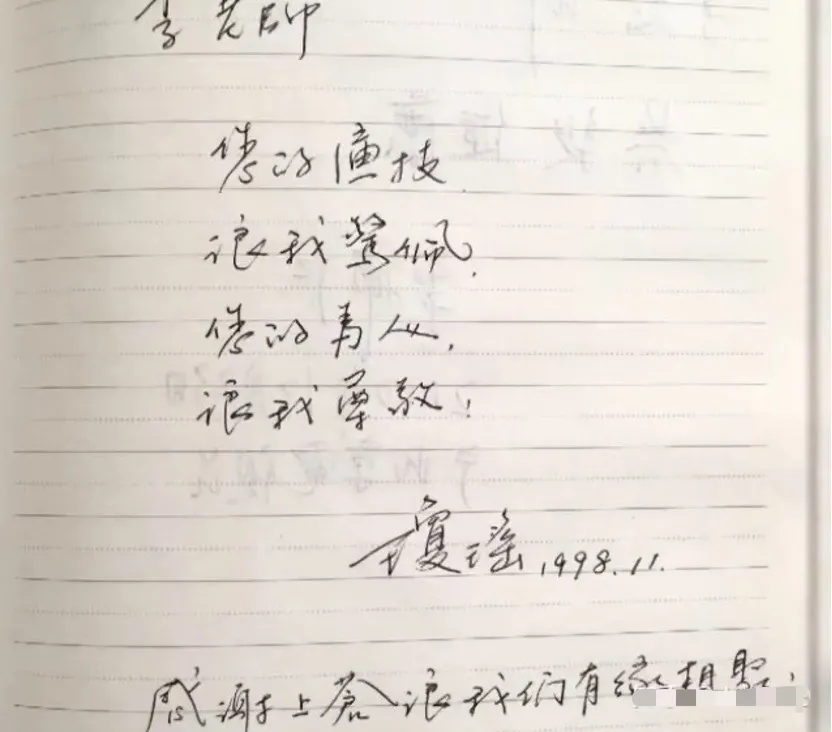 李老師
您的演技
讓我驚佩,
您的為人,
讓我尊敬!
瓊瑤 1998.11.
感謝上蒼讓我們有緣相聚,